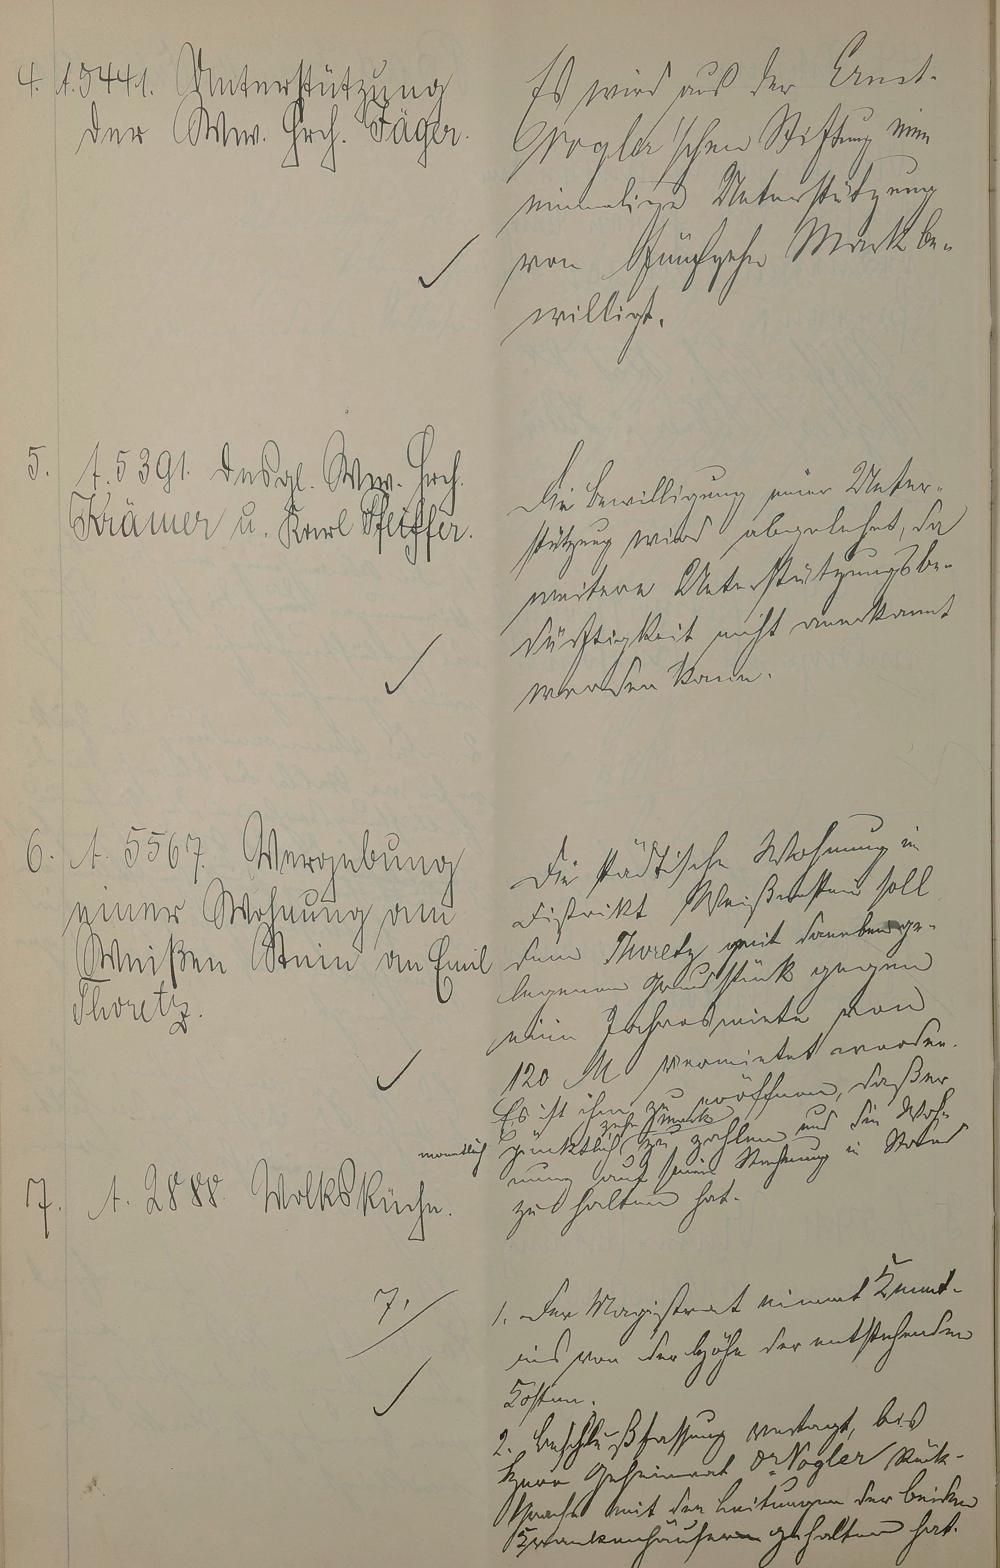 4. A.5441. Unterstützung
der Ww. Hrch. Jäger.
Es wird aus der Ernst-
Vogler'schen Stiftung eine
einmalige Unterstützung
von Fünfzehn Mark be-
willigt.
5. A.5391. Desgl. Ww. Hrch.
Krämer u. Karl Pfeiffer.
Die Bewilligung einer Unter-
stützung wird abgelehnt, da
weitere Unterstützungsbe-
dürftigkeit nicht anerkannt
werden kann.
6. A. 5567. Vergebung
einer Wohnung am
Weißen Stein an Emil
Thoretz.
Die städtische Wohnung im
Distrikt Weißenstein soll
dem Thoretz mit danebenge-
legenem Grundstück gegen
eine Jahresmiete von
120 M vermietet werden.
Es ist ihm zu eröffnen, daß er
monatlich zehn Mark
pünktlich zu zahlen und die Woh-
nung auf seine Rechnung in Stand
zu halten hat.
7. A. 2888. Volksküche.
7.
1. Der Magistrat nimmt Kennt-
nis von der Höhe der entstehenden
Kosten.
2. Beschlußfassung vertagt, bis
Herr Geheimrat Dr Vogler Rück-
sprache mit den Leitungen der beiden
Krankenhäuser gehalten hat.